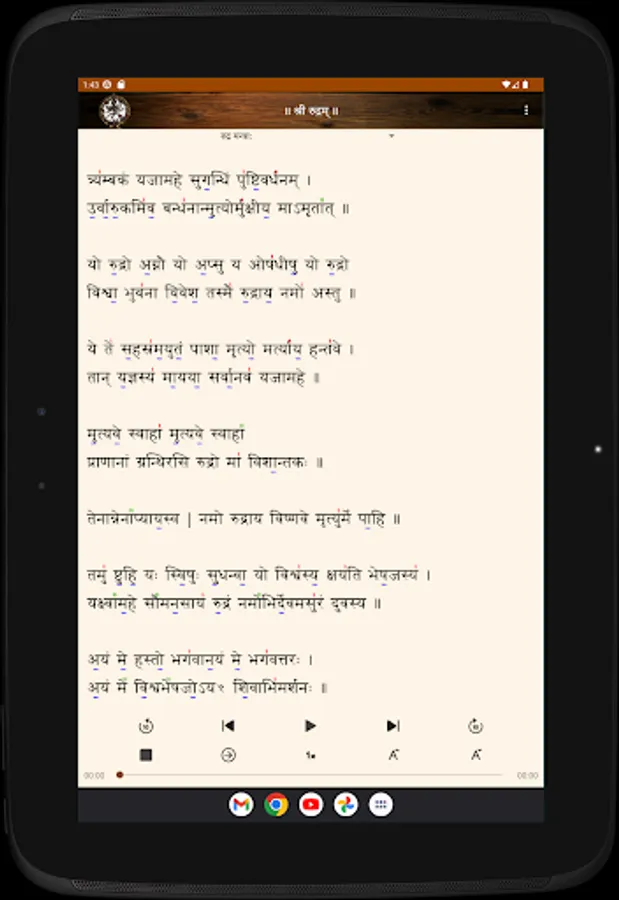 1:43
॥ श्री रुद्रम् ॥
रुद्र मन्त्राः
त्र्य॑म्बकं यजामहे सुग॒न्धिं पु॑ष्टि॒वर्ध॑नम् ।
उ॒र्वा॒रु॒कमि॑व॒ बन्ध॑नान्मृ॒त्योर्मु॑क्षीय॒ माऽमृता᳚त् ॥
यो रु॒द्रो अ॒ग्नौ यो अ॒प्सु य ओष॑धीषु॒ यो रु॒द्रो
विश्वा॒ भुव॑ना वि॒वेश॒ तस्मै॑ रु॒द्राय॒ नमो॑ अस्तु ॥
ये ते॑ स॒हस्र॑म॒युतं॒ पाशा॒ मृत्यो॒ मर्त्या॑य॒ हन्त॑वे ।
तान् य॒ज्ञस्य॑ मा॒यया॒ सर्वा॒नव॑ यजामहे ॥
मृ॒त्यवे॒ स्वाहा॑ मृ॒त्यवे॒ स्वाहा᳚
प्राणानां ग्रन्थिरसि रुद्रो मा॑ विशा॒न्तकः ॥
तेनान्नेना᳚प्याय॒स्व | नमो रुद्राय विष्णवे मृत्यु॑र्मे पा॒हि ॥
तमु॑ ष्टु॒हि॒ यः स्वि॒षुः सु॒धन्वा॒ यो विश्व॑स्य॒ क्षय॑ति भेष॒जस्य॑ ।
यक्ष्वा᳚म॒हे सौ᳚मन॒साय॑ रु॒द्रं नमो᳚भिर्दे॒वमसु॑रं दुवस्य ॥
अ॒यं मे॒ हस्तो॒ भग॑वान॒यं मे॒ भग॑वत्तरः ।
अ॒यं मे᳚ वि॒श्वभे᳚षजो॒ऽय१ शि॒वाभि॑मर्शनः ॥
00:00
00:00